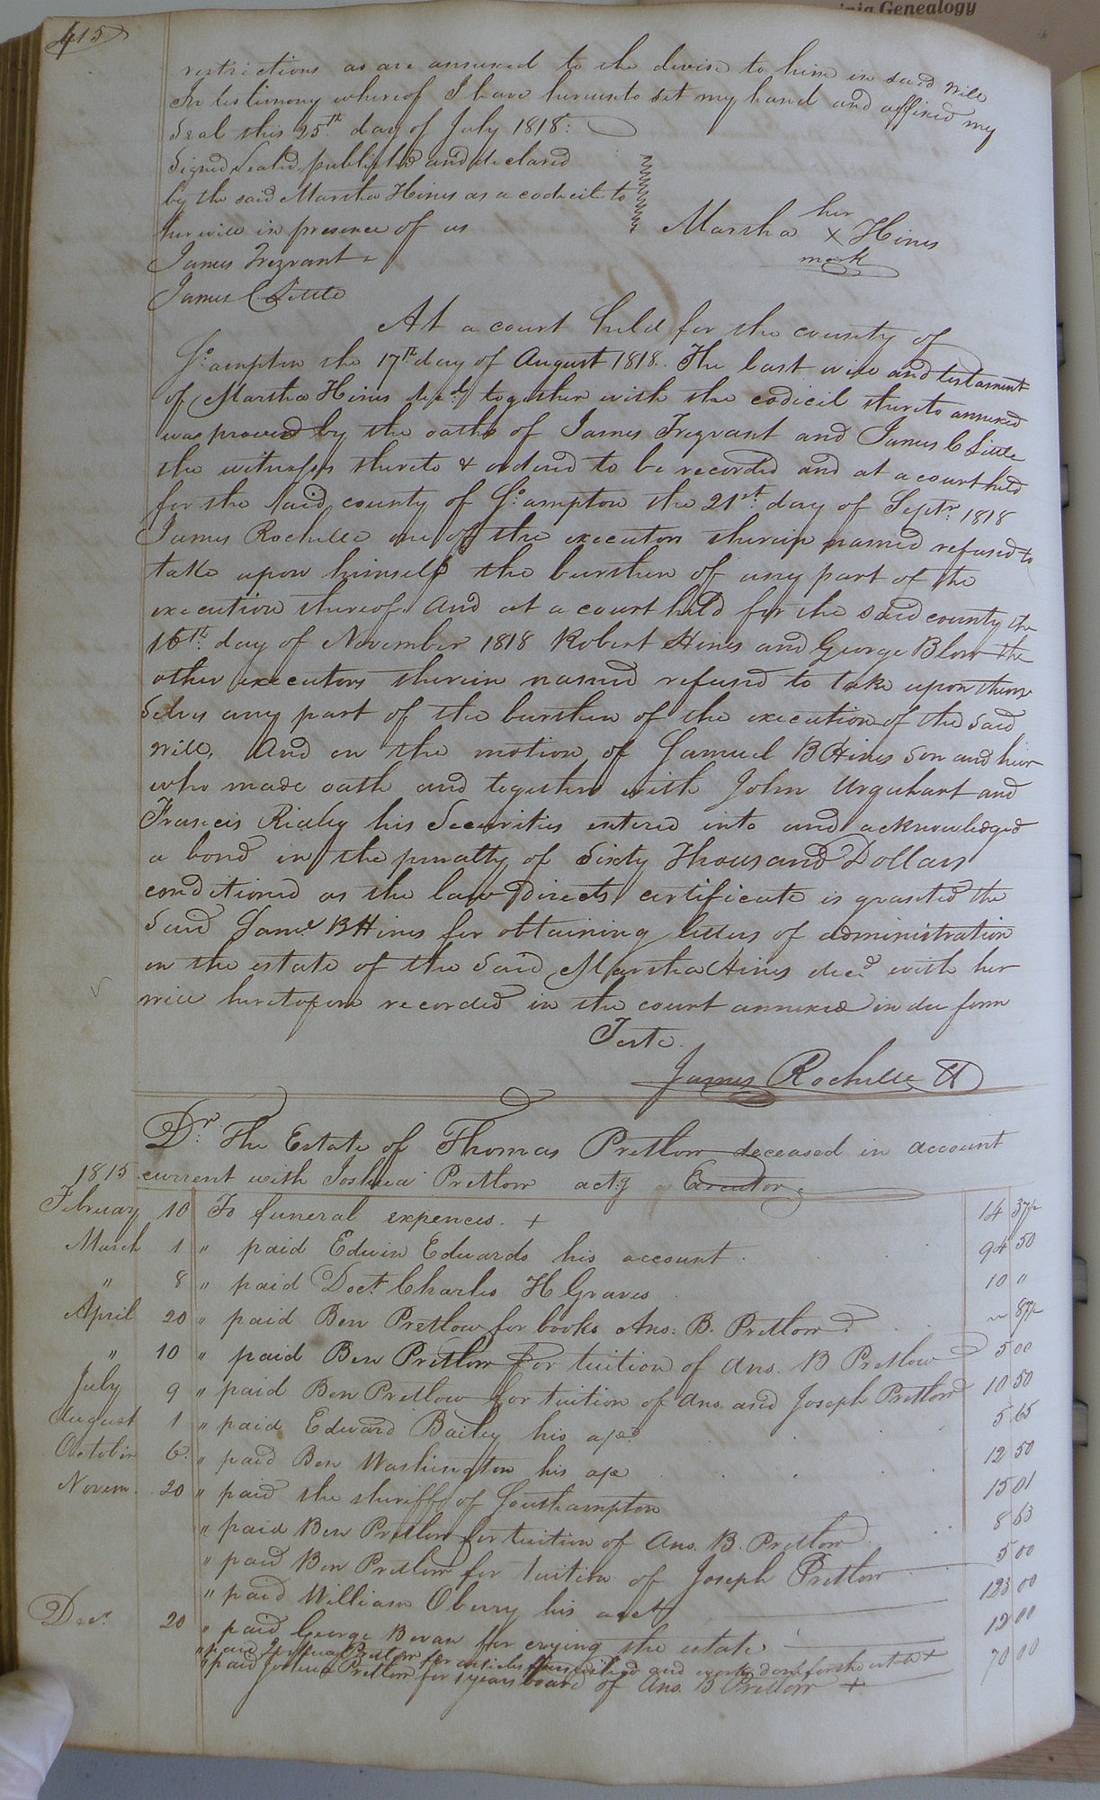 Genealogy
415
restrictions as are annexed to the devise to him in said will
In testimony whereof I have hereunto set my hand and affixed my
Seal this 25th day of July 1818.
Signed Sealed published and declared
by the said Martha Hines as a codicil to
her will in presence of us
her
Martha X Hines
mark
James Trezvant
James C Little
At a court held for the county of
So.ampton the 17th day of August 1818. The last will and testament
of Martha Hines decd. together with the codicil thereto annexed
was proved by the oaths of James Trezvant and James C Little
the witnesses thereto & ordered to be recorded and at a court held
for the said county of So.ampton the 21st. day of Septr. 1818
James Rochelle one of the executors therein named refused to
take upon himself the burthen of any part of the
execution thereof. And at a court held for the said county the
16th. day of November 1818 Robert Hines and George Blow the
other executors therein named refused to take upon them
selves any part of the burthen of the execution of the said
will, And on the motion of Samuel B Hines Son and heir
who made oath and together with John Urquhart and
Francis Ridley his Securities entered into and acknowledged
a bond in the penalty of Sixty Thousand Dollars
conditioned as the law directs certificate is granted the
Said Saml. B Hines for obtaining letters of administration
on the estate of the Said Martha Hines decd with her
will heretofore recorded in the court annexed in due form
Teste.
James Rochelle
Dr. The Estate of Thomas Pretlow deceased in account
1815 current with Joshua Pretlow actg Executor
February 10 To funeral expences + 14 37½
March 1 " paid Edwin Edwards his account 94 50
" 8 " paid Doct. Charles H Graves 10 "
April 20 " paid Ben Pretlow for books Ans. B. Pretlow " 87½
" 10 " paid Ben Pretlow for tuition of Ans. B Pretlow 5 00
July 9 " paid Ben Pretlow for tuition of Ans. and Joseph Pretlow 10 50
August 1 " paid Edward Bailey his a/c 5 65
October 6 " paid Ben Washington his a/c 12 50
Novem. 20 " paid the sheriff of Southampton 15 01
" paid Ben Pretlow for tuition of Ans. B. Pretlow 8 63
" paid Ben Pretlow for tuition of Joseph Pretlow 5 00
" paid William Oberry his acct 123 00
Decr. 20 " paid George Bevan for crying the estate 12 00
" paid Joshua Pretlow for articles furnished and work done for the estate +
" paid Joshua Pretlow for 1 years board of Ans. B Pretlow + 70 00